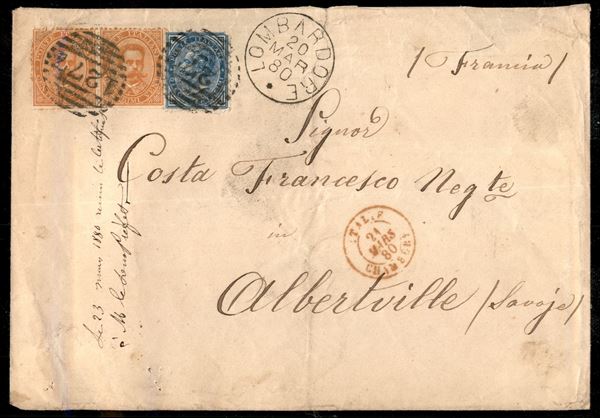 LOMBARDORE
20
MAR
80
(Francia)
Signor
Costa Francesco Negte
in
Albertville (Savoje)
ITAL. F
21
MARS
80
CHAMBERY
Le 23 mars 1880 remis le
à M. le Sous Préfet